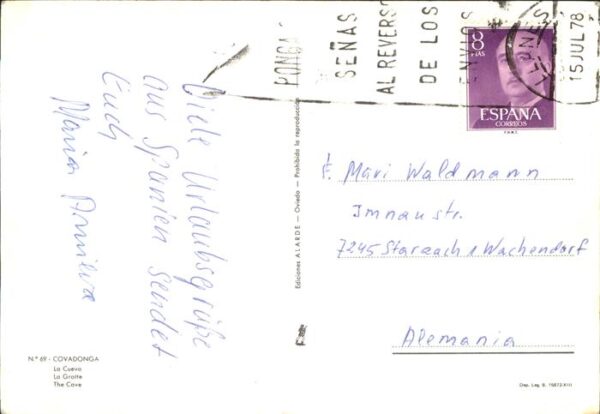 PONGA
SEÑAS
AL REVERSO
DE LOS
ENVIOS
15 JUL 78
8
PTAS
ESPAÑA
CORREOS
F.N.M.T.
Viele Urlaubsgrüße
aus Spanien sendet
Euch
Maria
Ediciones ALARDE – Oviedo – Prohibida la reproducción
F. Mari Waldmann
Imnaustr.
7245 Starzach 1 Wachendorf
Alemania
N.º 69 - COVADONGA
La Cueva
La Grotte
The Cave
Dep. Leg. B.